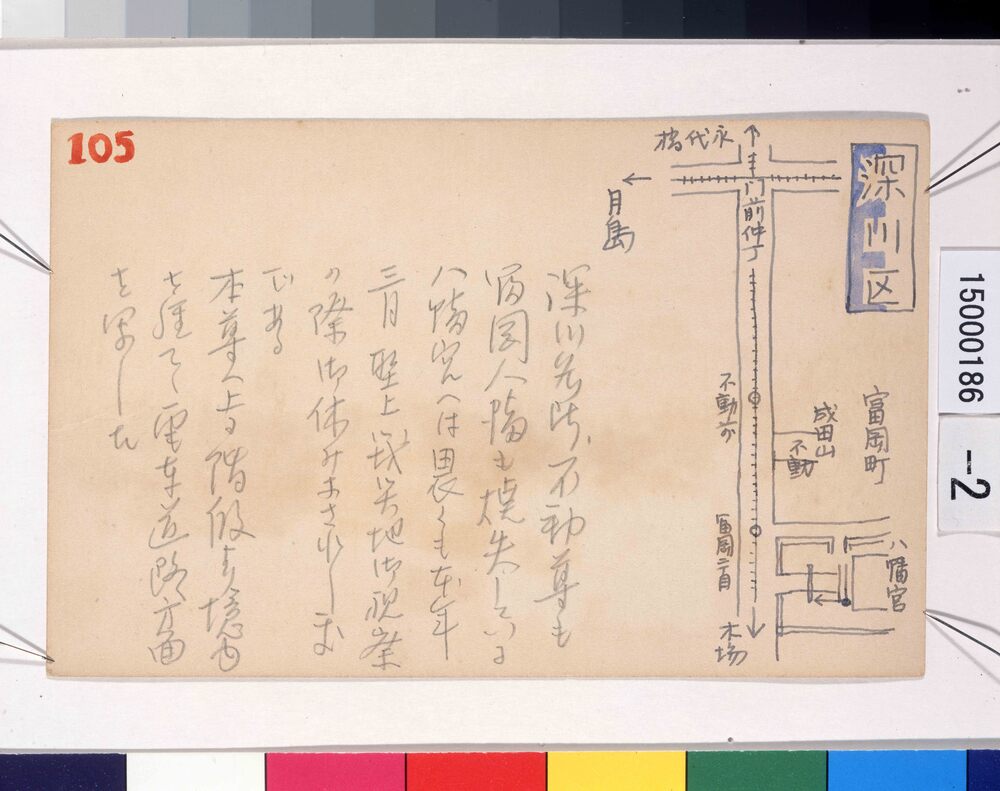 105
深川区
永代橋
月島
門前仲丁
不動前
富岡二丁目
木場
富岡町
成田山
不動
八幡宮
深川名所、不動尊も
富岡八幡も焼失している
八幡宮へは畏くも本年
三月 聖上戦災地御視察
の際御休みまされしま
である
本尊へ上る階段より境内
を経て電車道路方面
を写した
15000186
-2